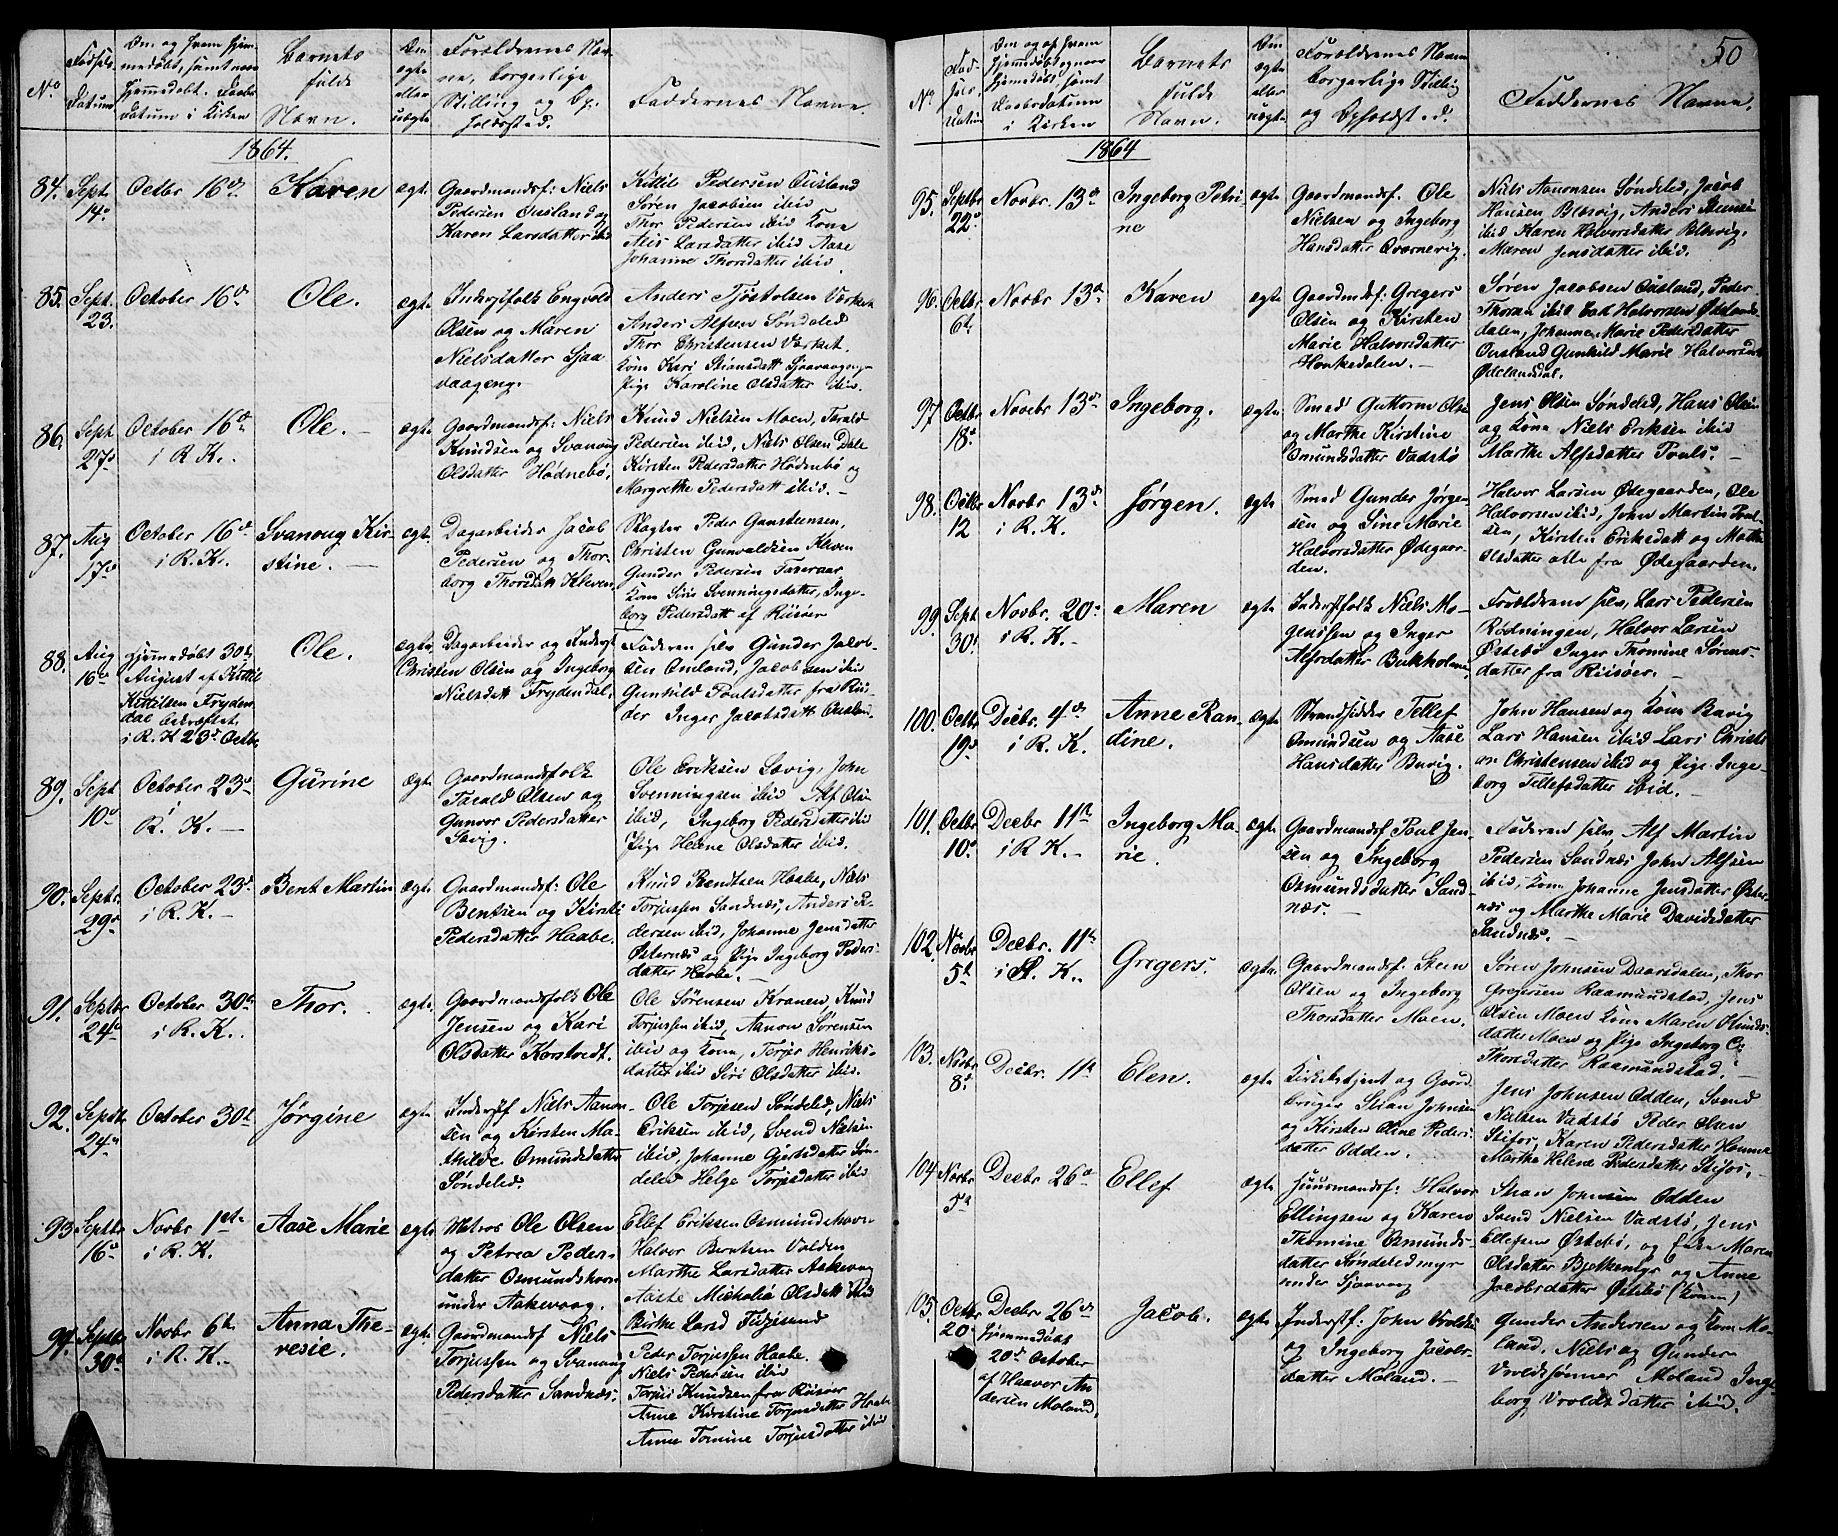 No
Fødsels-
Datum
Om og hvem hjem-
medøbt, samt naar
hjemdøbt. Daabs-
datum i Kirken
Barnets
fulde
Navn.
Om
ægte
eller
uægte
Forældrenes Nav-
ne, borgerlige
Stilling og Op-
holdssted.
Faddernes Navne
1864.
84.
Sept
14de
Octbr 16de
Karen
ægte
Gaardmandsf: Niels
Pedersen Ousland og
Karen Larsdatter ibid
Kittil Pedersen Ousland
Søren Jacobsen ibid
Thor Pedersen ibid Kone
Anis Larsdatter ibid Aase
Johanne Thorsdatter ibid.
85.
Sept.
23.
October 16de
Ole.
ægte
Inderstfolk Engvold
Olsen og Maren
Nielsdatter Sjaa-
vaageng.
Anders Tjøstolsen Værket
Anders Alfsen Søndeled
Thor Christensen Værket.
Kone Kari Stiansdatt Sjaavaageng
Pige Karoline Olsdatter ibid.
86.
Sept
27de
October 16de
i R. K.
Ole.
ægte
Gaardmandsf: Niels
Knudsen og Svanoug
Olsdatter Hødnebø.
Knud Nielsen Moen, Tarald
Pedersen ibid, Niels Olsen Dale
Kirsten Pedersdatt Hødnebø og
Margrethe Pedersdatt ibid.
87.
Aug
17de
October 16de
i R. K.
Svanoug Kir-
stine.
ægte.
Dagarbeider Jacob
Pedersen og Thor-
borg Thorsdatt Kleven
Slagter Peder Gunstensen,
Christen Gunvaldsen Kleven
Gunder Pedersen
Kone Siri Svenningsdatter, Inge-
borg Pedersdatt af Riisøer
88.
Aug
16de
Hjemmedøbt 30te
August af Kittil
Kittilsen Fryden-
dal bekræftet
i R. K 23de Octbr
Ole.
ægte
Dagarbeider og Inderst
Christen Olsen og Ingeborg
Nielsdatt Frydendal.
Faderen selv Gunder Jacob-
sen Ousland, Jacob sen ibid
Gunhild Poulsdatter fra Rii-
der Inger Jacobsdatt Ousland.
89.
Sept
10de
October 23de
R. K.
Gurine
ægte
Gaardmandsfolk
Tarald Olsen og
Gunvor Pedersdatter
Lavig.
Ole Eriksen Lavig, John
Svenningsen ibid Alf Olsen
ibid, Ingeborg Pedersdatter ibid
Pige Helene Olsdatter ibid.
90.
Septr.
29de
October 23de
i R. K.
Bent Martin
ægte
Gaardmandsf: Ole
Bentsen og Kirsti
Pedersdatter Haabe.
Knud Bentsen Haabe, Niels
Torjussen Sandnæs, Anders A-
dersen ibid, Johanne Jensdatter
Østernæs og Pige Ingeborg Peders-
datter Haabe.
91.
Septbr
24de
October 30te
i R. K.
Thor.
ægte.
Gaardmandsfolk Ole
Jensen og Kari
Olsdatter Korstvedt.
Ole Sørensen Kranen, Knud
Torjussen ibid, Aanon Sørensen
ibid og Kone, Torjer Henriks-
datter ibid Siri Olsdatter ibid.
92.
Septbr
24de
October 30te
Jørgine
ægte
Inderstf Niels Aanon-
sen og Kirsten Ma-
thilde Osmundsdatter
Søndeled.
Ole Torjesen Søndeled, Niels
Eriksen ibid, Svend Nielsen
ibid, Johanne Gjertsdatter Søn-
deled Helge Torjesdatter ibid
93
Septbr
16de
Novbr 1ste
i R. K.
Aase Marie
ægte
Matros Ole Olsen
og Petrea Peders-
datter Osmundshavn
under Aakevaag.
Ellef Eriksen Osmundshavn
Halvor Berntsen Volden
Marthe Larsdatter Aakevaag
Aaste Mickalia Olsdatt ibid
94.
Septbr
30te
Novbr 6te
i R. K.
Anna The-
resie.
ægte
Gaardmandsf Niels
Torjussen og Svanaug
Pedersdatter Sandnæs
Peder Torjussen Haabe.
Niels Pedersen ibid
Torjus Knudsen fra Riisøer
Anne Kirstine Torjusdatter Haabe
Anne Tomine Torjusdatter ibid
50
No
Fød-
sels-
Datum
Om og af hvem
hjemmedøbt og naar
hjemdøbt samt
Daabsdatum
i Kirken
Barnets
fulde
Navn.
Om
ægte
eller
uægte.
Forældrenes Navne
borgerlige Stilling
og Opholdsted.
Faddernes Navne.
1864
95.
Septbr
22de
Novbr. 13de
Ingeborg Petri-
ne
ægte
Gaardmandsf. Ole
Nielsen og Ingeborg
Hansdatter Qvernevig.
Niels Aanonsen Søndeled, Jacob
Hansen Blesvig, Anders
ibid Karen Halvorsdatter Blesvig.
Maren Jensdatter ibid.
96.
Octbr
6te
Novbr 13de
Karen
ægte
Gaardmdsf: Gregers
Olsen og Kirsten
Marie Halvorsdatter
Henkedalen.
Søren Jacobsen Ousland, Peder
Thorsen ibid Halvorsen Ødelands-
dalen, Johanne Marie Pedersdatter
Ousland Gunhild Marie Halvorsd
Ødelandsdal.
97.
Octbr
18de
Novbr 13de
Ingeborg.
ægte
Smed Guttorm Olsen
og Marthe Kirstine
Osmundsdatter Vadstø
Jens Olsen Søndeled, Hans Olsen
og Kone Niels Eriksen ibid
Marthe Alfsdatter Pouls.
98.
Octbr
12
Novbr 13de
i R. K.
Jørgen.
ægte
Smed Gunder Jørgen-
sen og Sine Marie
Halvorsdatter Ødegaar-
den.
Halvor Larsen Ødegaarden, Ole
Halvorsen ibid, John Martin Poul-
sen, Kirsten Eriksdatt og Marthe
Olsdatter alle fra Ødegaarden.
99.
Sept
30te
Novbr. 20de
i R. K.
Maren
ægte
Inderstfolk Niels Mo-
gensen og Inger
Alfsdatter Bukholmen
Forældrene selv, Lars Pedersen
Rødningen, Halvor Larsen
Østebø Inger Thomine Sørens-
datter fra Riisøer.
100.
Octbr
19de
Decbr 4de
i R. K.
Anne Ran-
dine.
ægte
Strandsidder Tellef
Osmundsen og Aase
Hansdatter Buvig.
John Hansen og Kone Buvig
Lars Hansen ibid Lars Christi-
an Christensen ibid og Pige Inge-
borg Tellefsdatter ibid.
101.
Octbr
10de
Decbr 11te
i R K.
Ingeborg Ma-
rie.
ægte.
Gaardmandsf Poul Jen-
sen og Ingeborg
Osmundsdatter Sand-
næs.
Faderen selv, Alf Martin
Pedersen Sandnæs John Alfsen
ibid, Kone Johanne Jensdatter Øster-
næs og Marthe Marie Davidsdatter
Sandnæs.
102.
Novbr
5te
Decbr. 11te
i R. K.
Gregers.
ægte
Gaardmandsf: Steen
Olsen og Ingeborg
Thorsdatter Moen.
Søren Johnsen Daarsdalen, Thor
Gregersen Raamundstad, Jens
Olsen Moen Kone Maren Knuds-
datter Moen og Pige Ingeborg
Thorsdatter Raamundstad.
103.
Novbr
8de
Decbr. 11te
Elen.
ægte
Kirketjent og Gaard
bruger Stian Johnsen
og Kirsten Oline Peders-
datter Odden.
Jens Johnsen Odden, Svend
Nielsen Vadstø Peder Olsen
Stifos, Karen Pedersdatter Homme
Marthe Helene Pedersdatter Stifos.
104
Novbr
5te
Decbr 26de
Ellef
ægte
Huusmandsf: Halvor
Ellingsen og Karen
Thomine Osmunds-
datter Søndeledmyr
under Sjaavaag
Stian Johnsen Odden
Svend Nielsen Vadstø, Jens
Ellefsen Østebø, og Enke Maren
Olsdatter Bjelkemyr og Anne
Jacobsdatter Østebø (Kone)
105.
Octbr
20
Decbr 26de
Hjemmedøbt
20de October
af Haavor An-
dersen Moland,
Jacob.
ægte.
Inderstf: John Vrolds
og Ingeborg Jacobs-
datter Moland.
Gunder Andersen og Kone Mo-
land. Niels og Gunder
Vroldsønner Moland Inge
borg Vroldsdatter ibid.